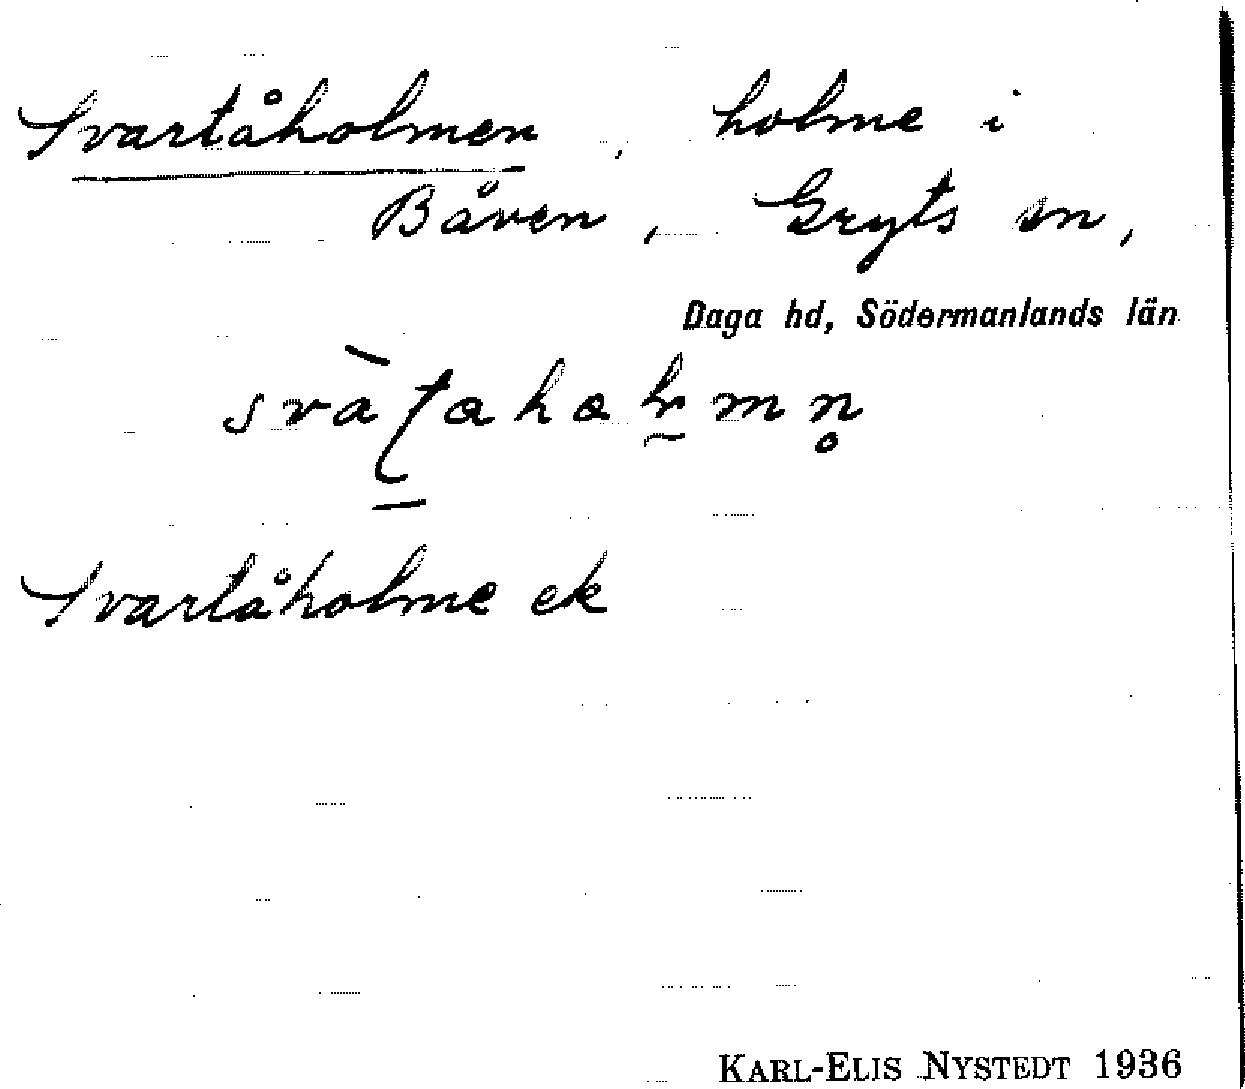 Svartåholmen, holme i
Båven, Gryts sn,
Daga hd, Södermanlands län
Svartåholme ek
KARL-ELIS NYSTEDT 1936